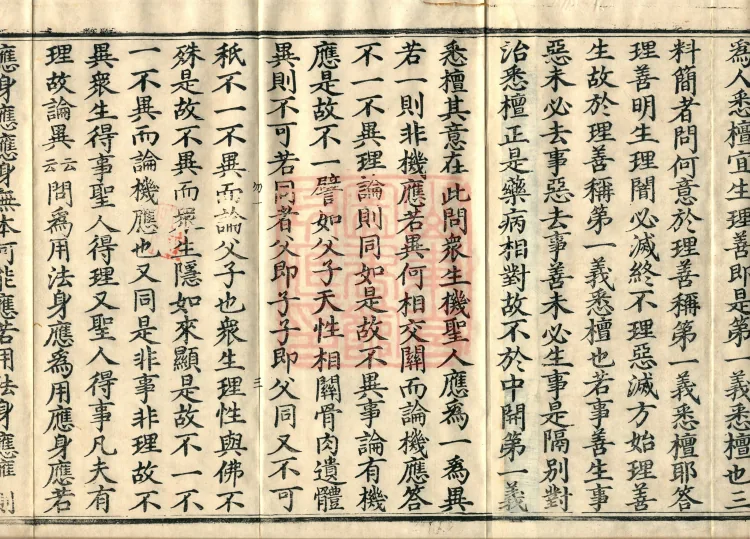 爲人悉檀宜生理善即是第一義悉檀也三
料簡者問何意於理善稱第一義悉檀耶答
理善明生理闇必滅終不理惡滅方始理善
生故於理善稱第一義悉檀也若事善生事
惡未必去事惡去事善未必生事是隔別對
治悉檀正是藥病相對故不於中開第一義
悉檀其意在此問衆生機聖人應爲一爲異
若一則非機應若異何相交關而論機應答
不一不異理論則同如是故不異事論有機
應是故不一譬如父子天性相關骨肉遺體
異則不可若同者父即子子即父同又不可
秖不一不異而論父子也衆生理性與佛不
殊是故不異而衆生隱如來顯是故不一不
一不異而論機應也又同是非事非理故不
異衆生得事聖人得理又聖人得事凡夫有
理故論異云云問爲用法身應爲用應身應若
應身應應身無本何能應若用法身應應則